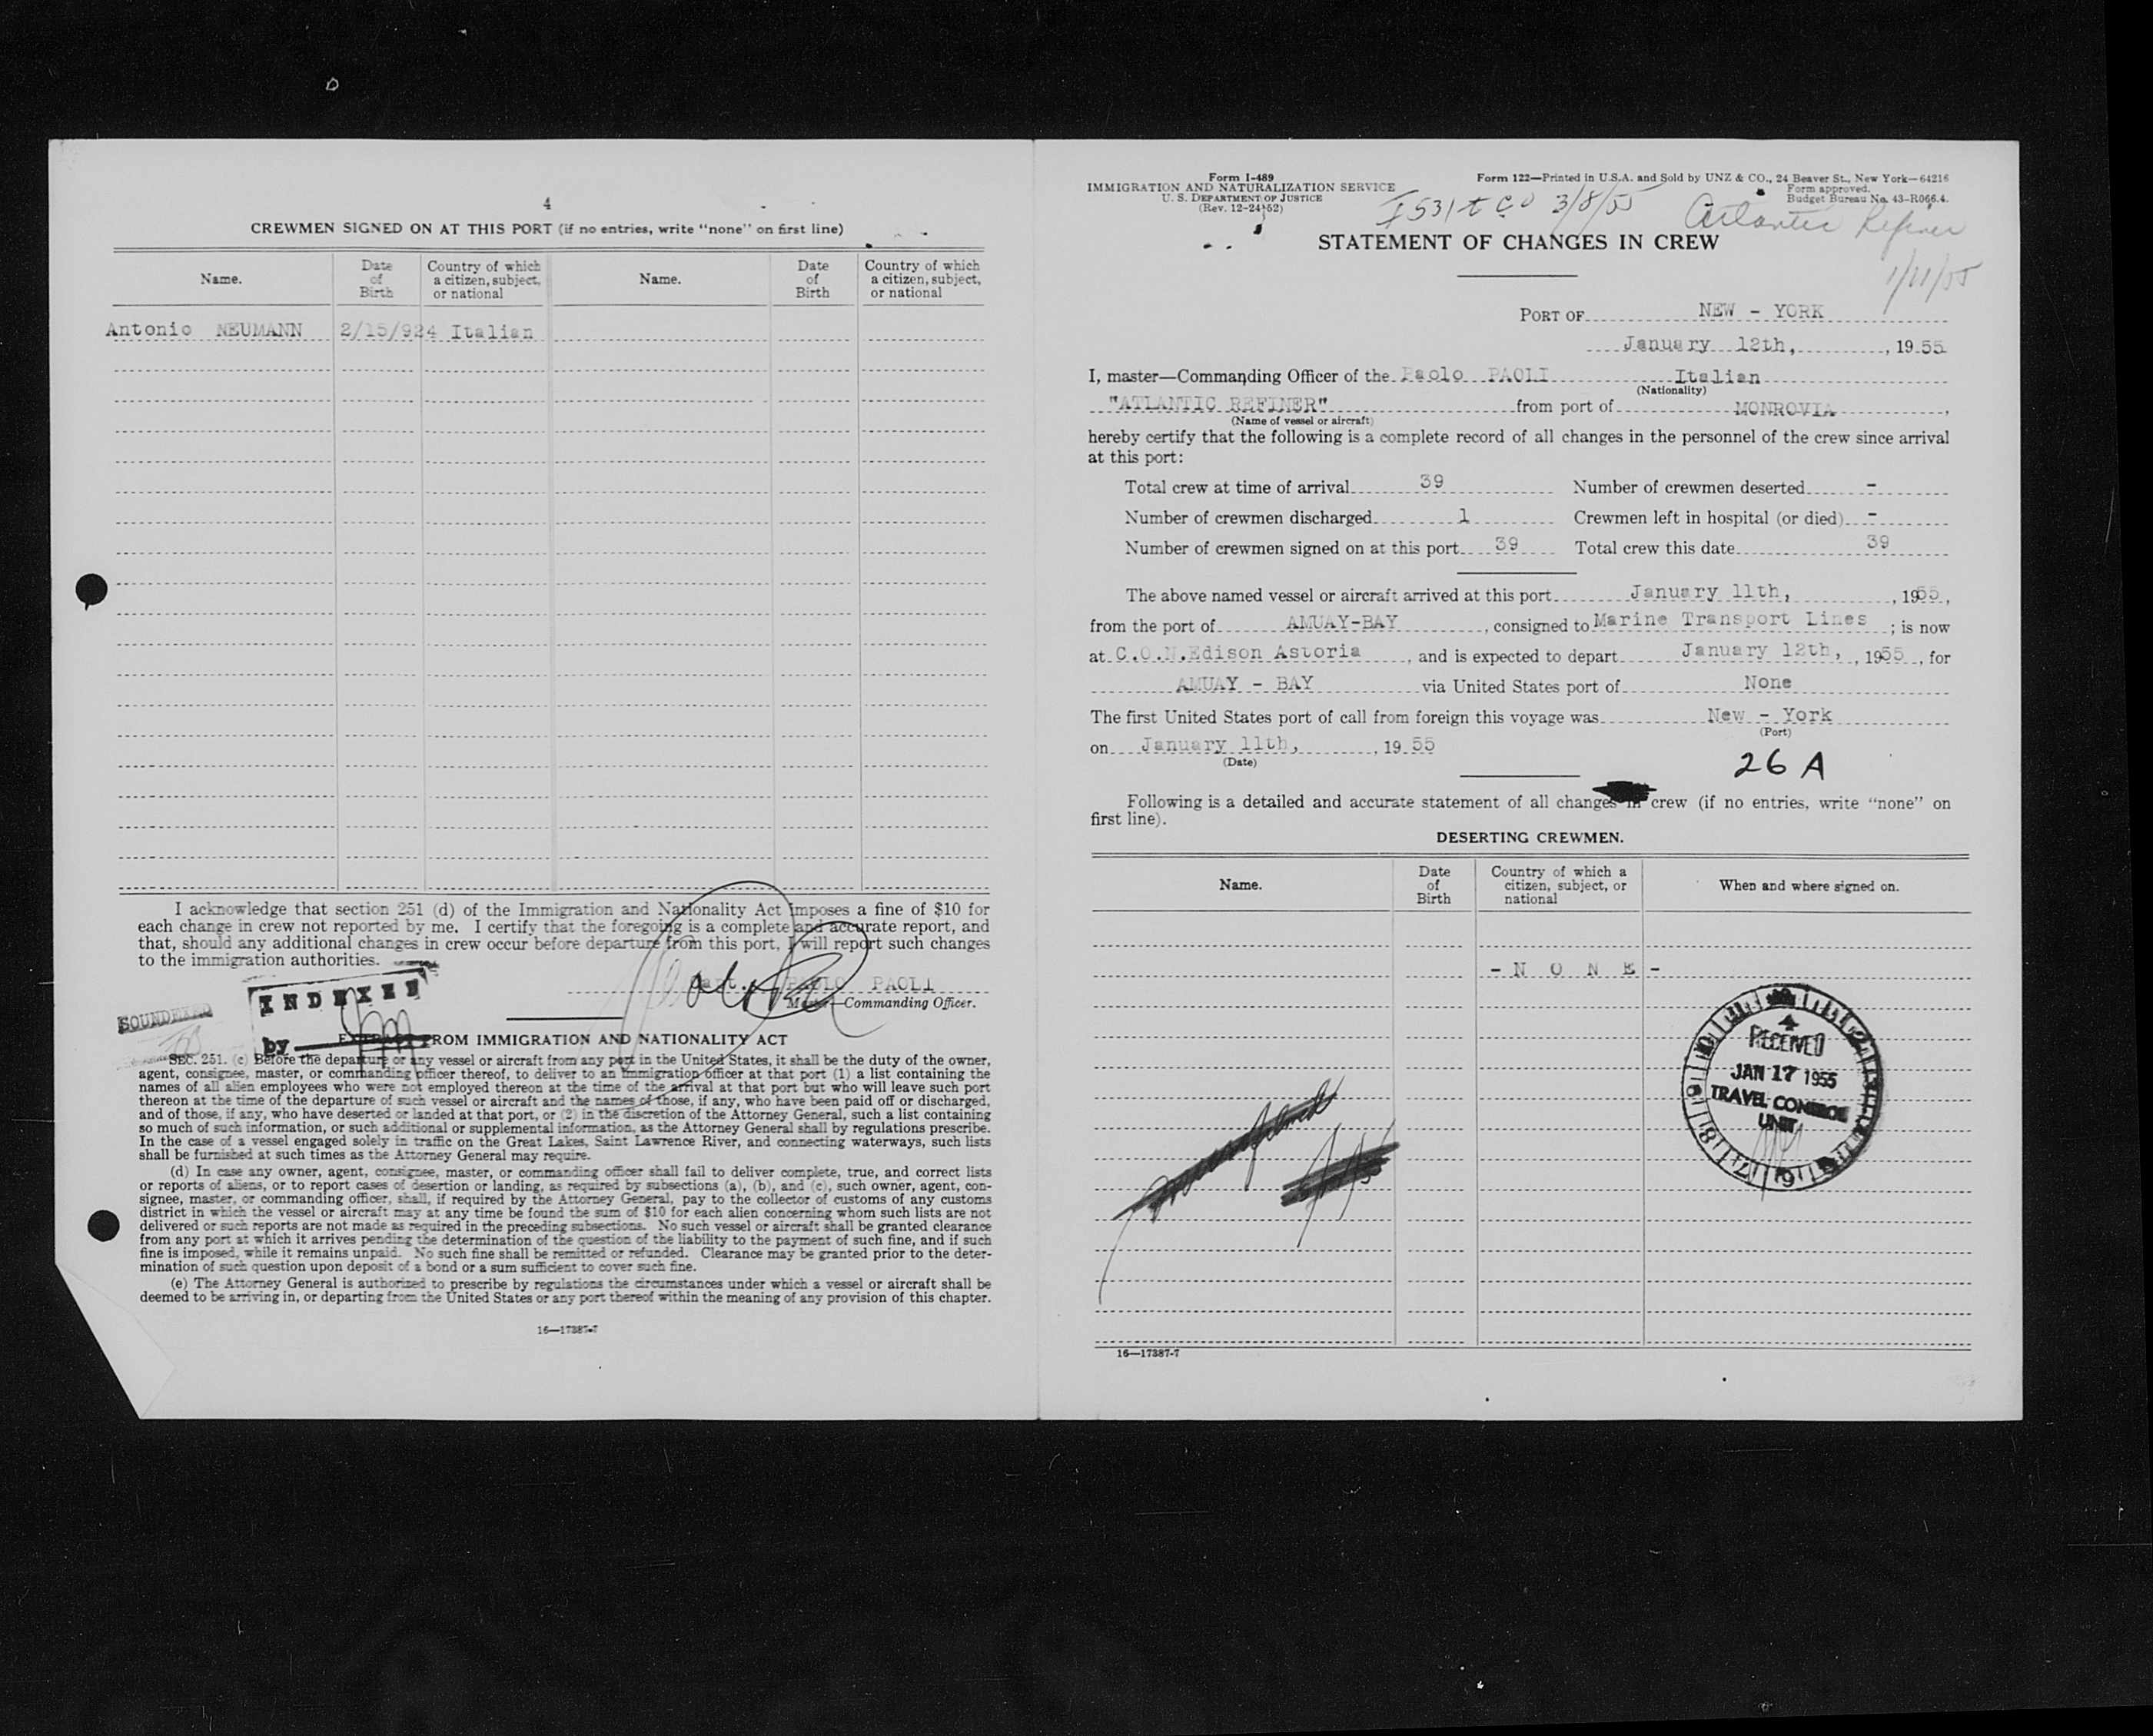 4
CREWMEN SIGNED ON AT THIS PORT (if no entries, write "none" on first line)
Name. Date of Birth Country of which a citizen, subject, or national Name. Date of Birth Country of which a citizen, subject, or national
Antonio NEUMANN 2/15/924 Italian
I acknowledge that section 251 (d) of the Immigration and Nationality Act imposes a fine of $10 for
each change in crew not reported by me. I certify that the foregoing is a complete and accurate report, and
that, should any additional changes in crew occur before departure from this port, I will report such changes
to the immigration authorities.
PAOLO PAOLI
Master—Commanding Officer.
INDEXED
SOUNDEXED
by
EXTRACT FROM IMMIGRATION AND NATIONALITY ACT
SEC. 251. (c) Before the departure of any vessel or aircraft from any port in the United States, it shall be the duty of the owner,
agent, consignee, master, or commanding officer thereof, to deliver to an immigration officer at that port (1) a list containing the
names of all alien employees who were not employed thereon at the time of the arrival at that port but who will leave such port
thereon at the time of the departure of such vessel or aircraft and the names of those, if any, who have been paid off or discharged,
and of those, if any, who have deserted or landed at that port, or (2) in the discretion of the Attorney General, such a list containing
so much of such information, or such additional or supplemental information, as the Attorney General shall by regulations prescribe.
In the case of a vessel engaged solely in traffic on the Great Lakes, Saint Lawrence River, and connecting waterways, such lists
shall be furnished at such times as the Attorney General may require.
(d) In case any owner, agent, consignee, master, or commanding officer shall fail to deliver complete, true, and correct lists
or reports of aliens, or to report cases of desertion or landing, as required by subsections (a), (b), and (c), such owner, agent, con-
signee, master, or commanding officer, shall, if required by the Attorney General, pay to the collector of customs of any customs
district in which the vessel or aircraft may at any time be found the sum of $10 for each alien concerning whom such lists are not
delivered or such reports are not made as required in the preceding subsections. No such vessel or aircraft shall be granted clearance
from any port at which it arrives pending the determination of the question of the liability to the payment of such fine, and if such
fine is imposed, while it remains unpaid. No such fine shall be remitted or refunded. Clearance may be granted prior to the deter-
mination of such question upon deposit of a bond or a sum sufficient to cover such fine.
(e) The Attorney General is authorized to prescribe by regulations the circumstances under which a vessel or aircraft shall be
deemed to be arriving in, or departing from the United States or any port thereof within the meaning of any provision of this chapter.
16—17387-7
Form I-489
IMMIGRATION AND NATURALIZATION SERVICE
U. S. DEPARTMENT OF JUSTICE
(Rev. 12-24-52)
Form 122—Printed in U.S.A. and Sold by UNZ & CO., 24 Beaver St., New York—64216
Form approved.
Budget Bureau No. 43-R066.4.
3/8/55
Atlantic Refiner
1/11/55
STATEMENT OF CHANGES IN CREW
PORT OF NEW - YORK
January 12th, , 19 55
I, master—Commanding Officer of the Paolo PAOLI Italian
(Nationality)
"ATLANTIC REFINER" from port of MONROVIA ,
(Name of vessel or aircraft)
hereby certify that the following is a complete record of all changes in the personnel of the crew since arrival
at this port:
Total crew at time of arrival 39 Number of crewmen deserted -
Number of crewmen discharged 1 Crewmen left in hospital (or died) -
Number of crewmen signed on at this port 39 Total crew this date 39
The above named vessel or aircraft arrived at this port January 11th, , 1955,
from the port of AMUAY-BAY , consigned to Marine Transport Lines ; is now
at C.O.N.Edison Astoria , and is expected to depart January 12th, , 1955 , for
AMUAY - BAY via United States port of None
The first United States port of call from foreign this voyage was New - York
(Port)
on January 11th, , 19 55
(Date)
26 A
Following is a detailed and accurate statement of all changes in crew (if no entries, write "none" on
first line).
DESERTING CREWMEN.
Name. Date of Birth Country of which a citizen, subject, or national When and where signed on.
- N O N E -
RECEIVED
JAN 17 1955
TRAVEL CONTROL
UNIT
16—17387-7